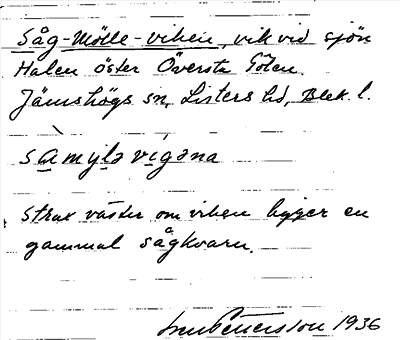 Såg-Mölle-viken, vik vid sjön
Halen öster Översta Töten.
Jämshögs sn, Listers hd, Blek. l.
sàmylə vigəna
Strax väster om viken ligger en
gammal sågkvarn.
Pettersson 1936